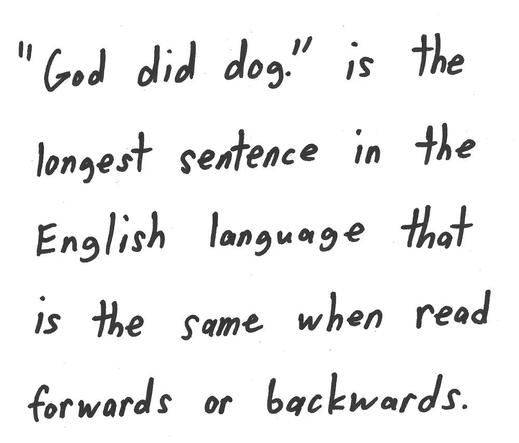 "God did dog." is the
longest sentence in the
English language that
is the same when read
forwards or backwards.